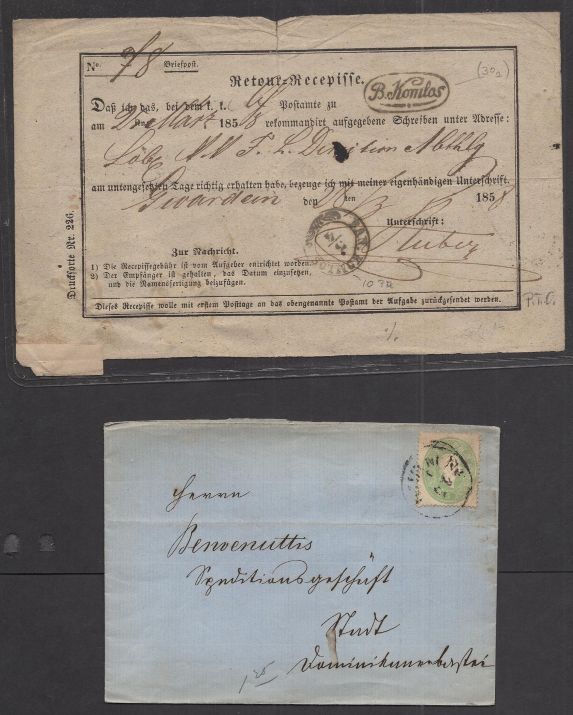 No. 78 Briefpost.
Retour-Recepisse.
(30s)
B. Komlos
Daß ich das, bei dem k. k. Postamte zu
am 2. März 1858 rekommandirt aufgegebene Schreiben unter Adresse:
Löbl. Division
am untengesetzten Tage richtig erhalten habe, bezeuge ich mit meiner eigenhändigen Unterschrift.
Gwardein den ten 1858
Unterschrift:
Zur Nachricht.
1) Die Recepissegebühr ist vom Aufgeber entrichtet worden.
2) Der Empfänger ist gehalten, das Datum einzusetzen,
und die Namensfertigung beizufügen.
Dieses Recepisse wolle mit erstem Posttage an das obengenannte Postamt der Aufgabe zurückgesendet werden.
Drucksorte Nr. 226.
P.T.O.
Herrn
Benvenuttis
Speditionsgeschäft
Stadt
Dominikanerbastei